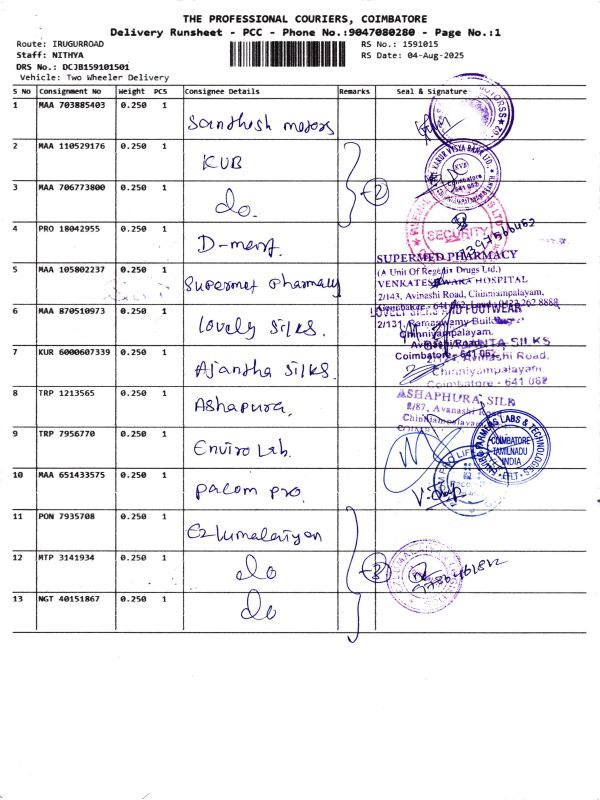 THE PROFESSIONAL COURIERS, COIMBATORE
Delivery Runsheet - PCC - Phone No.:9047080280 - Page No.:1
Route: IRUGURROAD
RS No.: 1591015
Staff: NITHYA
RS Date: 04-Aug-2025
DRS No.: DCJB159101501
Vehicle: Two Wheeler Delivery
S No Consignment No Weight PCS Consignee Details Remarks Seal & Signature
1 MAA 703885403 0.250 1 Santhosh motors
2 MAA 110529176 0.250 1 KVB
3 MAA 706773800 0.250 1 do.
4 PRO 18042955 0.250 1 D-mart.
5 MAA 105802237 0.250 1 Supermet Pharmacy
6 MAA 870510973 0.250 1 Lovely Silks.
7 KUR 6000607339 0.250 1 Ajantha Silks.
8 TRP 1213565 0.250 1 Ashapura.
9 TRP 7956770 0.250 1 Enviro Lab.
10 MAA 651433575 0.250 1 palom pro.
11 PON 7935708 0.250 1 Ezhumalaiyan
12 MTP 3141934 0.250 1 do
13 NGT 40151867 0.250 1 do
2
3
KARUR VYSYA BANK LTD.
KVB
Coimbatore
641 062
SECURITY
SUPERMED PHARMACY
(A Unit Of Regenix Drugs Ltd.)
VENKATESWARA HOSPITAL
2/143, Avinashi Road, Chinniyampalayam,
Coimbatore - 641 062
LOVELY SILKS AND FOOTWEAR
2/131, Ramaswamy Building
Chinniyampalayam,
Coimbatore - 641 062
Avinashi Road,
Chinniyampalayam
Coimbatore - 641 062
ASHAPHURA SILK
2/87, Avanashi Road
Chinniampalayam
LABS & TECHNOLOGIES
COIMBATORE
TAMILNADU
INDIA